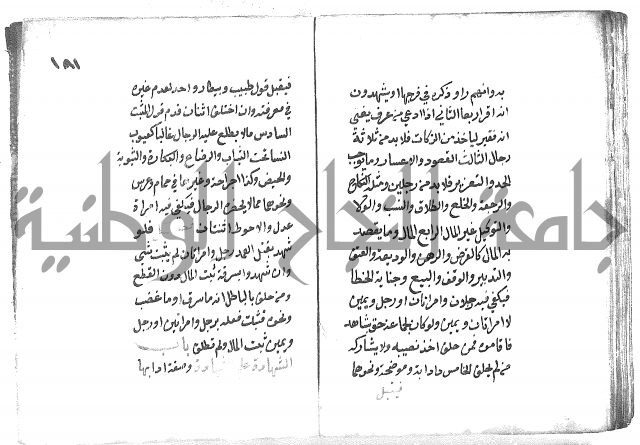 بدوانهم راو ذكره في فرجها او يشهدون
انه اقرار بها الثاني اذا ادعى من عرف بغنى
انه فقير لياخذ من الزكات فلا بد من ثلاثة
رجال الثالث القعود والاعسار وما يوجب
الحد والتعزير فلا بد من رجلين ومثله النكاح
والرجعة والخلع والطلاق والنسب والولا
والتوكيل في غير المال الرابع المال وما يقصد
به المال كالقرض والرهن والوديعة والعتق
والتدبير والوقف والبيع وجناية الخطا
فيكفي فيه رجلان وامراتان او رجل ويمين
لا امراتان ويمين ولو كان لجماعة حق بشاهد
فاقاموه فمن حلف اخذ نصيبه ولا يشاركه
من لم يحلف الخامس داء دابة وموضحة ونحوهما
فيقبل
١٨١
فيقبل قول طبيب وبيطار واحد لعدم غيره
في معرفته وان اختلف اثنان قدم قول المثبت
السادس مالا يطلع عليه الرجال غالبا كعيوب
النسا تحت الثياب والرضاع والبكارة والثيوبة
والحيض وكذا جراحة وغيرها في حمام وعرس
ونحوهما مما لا يحضره الرجال فيكفي فيه امراة
عدل والاحوط اثنتان فلو
شهد بقتل العمد رجل وامراتان لم يثبت شي
وان شهدوا بسرقة ثبت المال دون القطع
ومن حلف بالطلاق انه ما سرق او ما غصب
ونحوه فثبت فعله برجل وامراتين او رجل
ويمين ثبت المال ولم تطلق باب
الشهادة على الشهادة وصفة ادايها
جامعة النجاح الوطنية